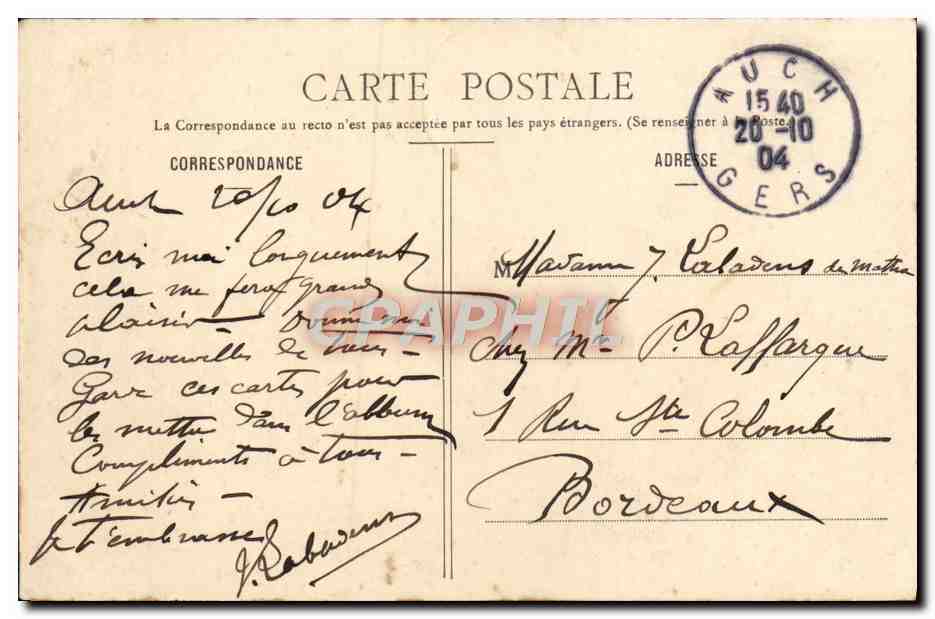 CARTE POSTALE
La Correspondance au recto n'est pas acceptée par tous les pays étrangers. (Se renseigner à la Poste.)
CORRESPONDANCE
Auch 20/10 04
Ecris moi longuement
cela me fera grand
plaisir — Donne moi
des nouvelles de tous —
Garde ces cartes pour
les mettre dans l'album
Compliments à tous —
Amitiés —
Je t'embrasse
J. Labadens
ADRESSE
AUCH
15 40
20 -10
04
GERS
Madame J. Labadens
chez Mr P. Laffargue
1 Rue Ste Colombe
Bordeaux
CPAPHIL